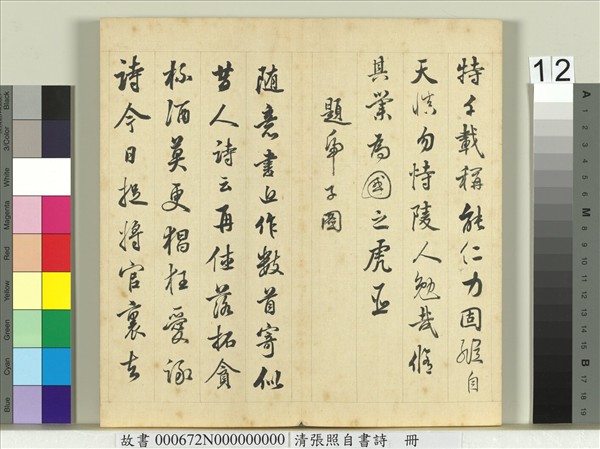 特千載稱能仁力固猴自
天慎勿恃陵人勉哉脩
具業為國之虎臣
題
子圖
隨意書近作數首寄似
昔人詩云再休落拓貪
杯酒莫更猖狂愛詠
詩今日捉將官裏去
12
故書 000672N000000000 清張照自書詩 冊
Black
3/Color
White
Magenta
Red
Yellow
Green
Cyan
Blue
A
1
2
3
4
5
6
M
8
9
10
11
12
13
14
15
B
17
18
19